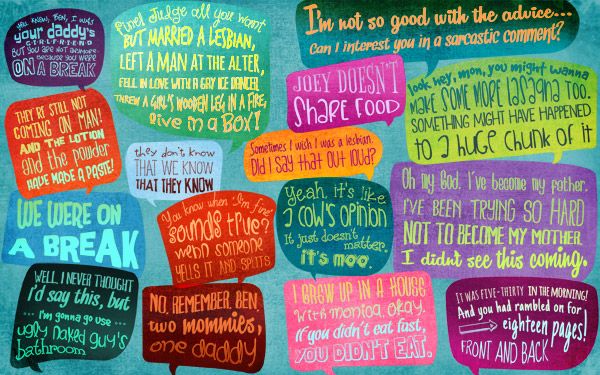 YOU KNOW, BEN, I WAS
your daddy's
GIRLFRIEND
BUT YOU ARE NOT ANYMORE
BECAUSE YOU WERE
ON A BREAK
Fine! Judge all you want
BUT MARRIED A LESBIAN,
LEFT A MAN AT THE ALTER,
FELL IN LOVE WITH A GAY ICE DANCER,
THREW A GIRL'S WOODEN LEG IN A FIRE,
live in a Box!
I'm not so good with the advice...
Can I interest you in a sarcastic comment?
JOEY DOESN'T
SHARE FOOD
look hey, mon, you might wanna
MAKE SOME MORE lasagna TOO.
SOMETHING MIGHT HAVE HAPPENED
TO a HUGE CHUNK OF IT
THEY'RE STILL NOT
COMING ON MAN!
AND THE LOTION
and the powder
HAVE MADE A PASTE!
they don't know
THAT WE KNOW
THAT THEY KNOW
Sometimes I wish I was a lesbian.
Did I say that out loud?
WE WERE ON
A BREAK
You know when "I'm fine"
sounds true?
when someone
YELLS IT AND SPLITS
Yeah, it's like
a COW'S OPINION
It just doesn't
matter.
IT'S MOO.
Oh my God, I've become my father.
I'VE BEEN TRYING SO HARD
NOT TO BECOME MY MOTHER.
I didn't see this coming.
WELL, I NEVER THOUGHT
I'd say this, but
... I'm gonna go use ...
ugly naked guy's
bathroom
NO, REMEMBER, BEN
two mommies,
one daddy
I GREW UP IN A HOUSE
With monica, okay.
If you didn't eat fast,
YOU DIDN'T EAT.
IT WAS FIVE-THIRTY IN THE MORNING!
And you had rambled on for
eighteen pages!
FRONT AND BACK